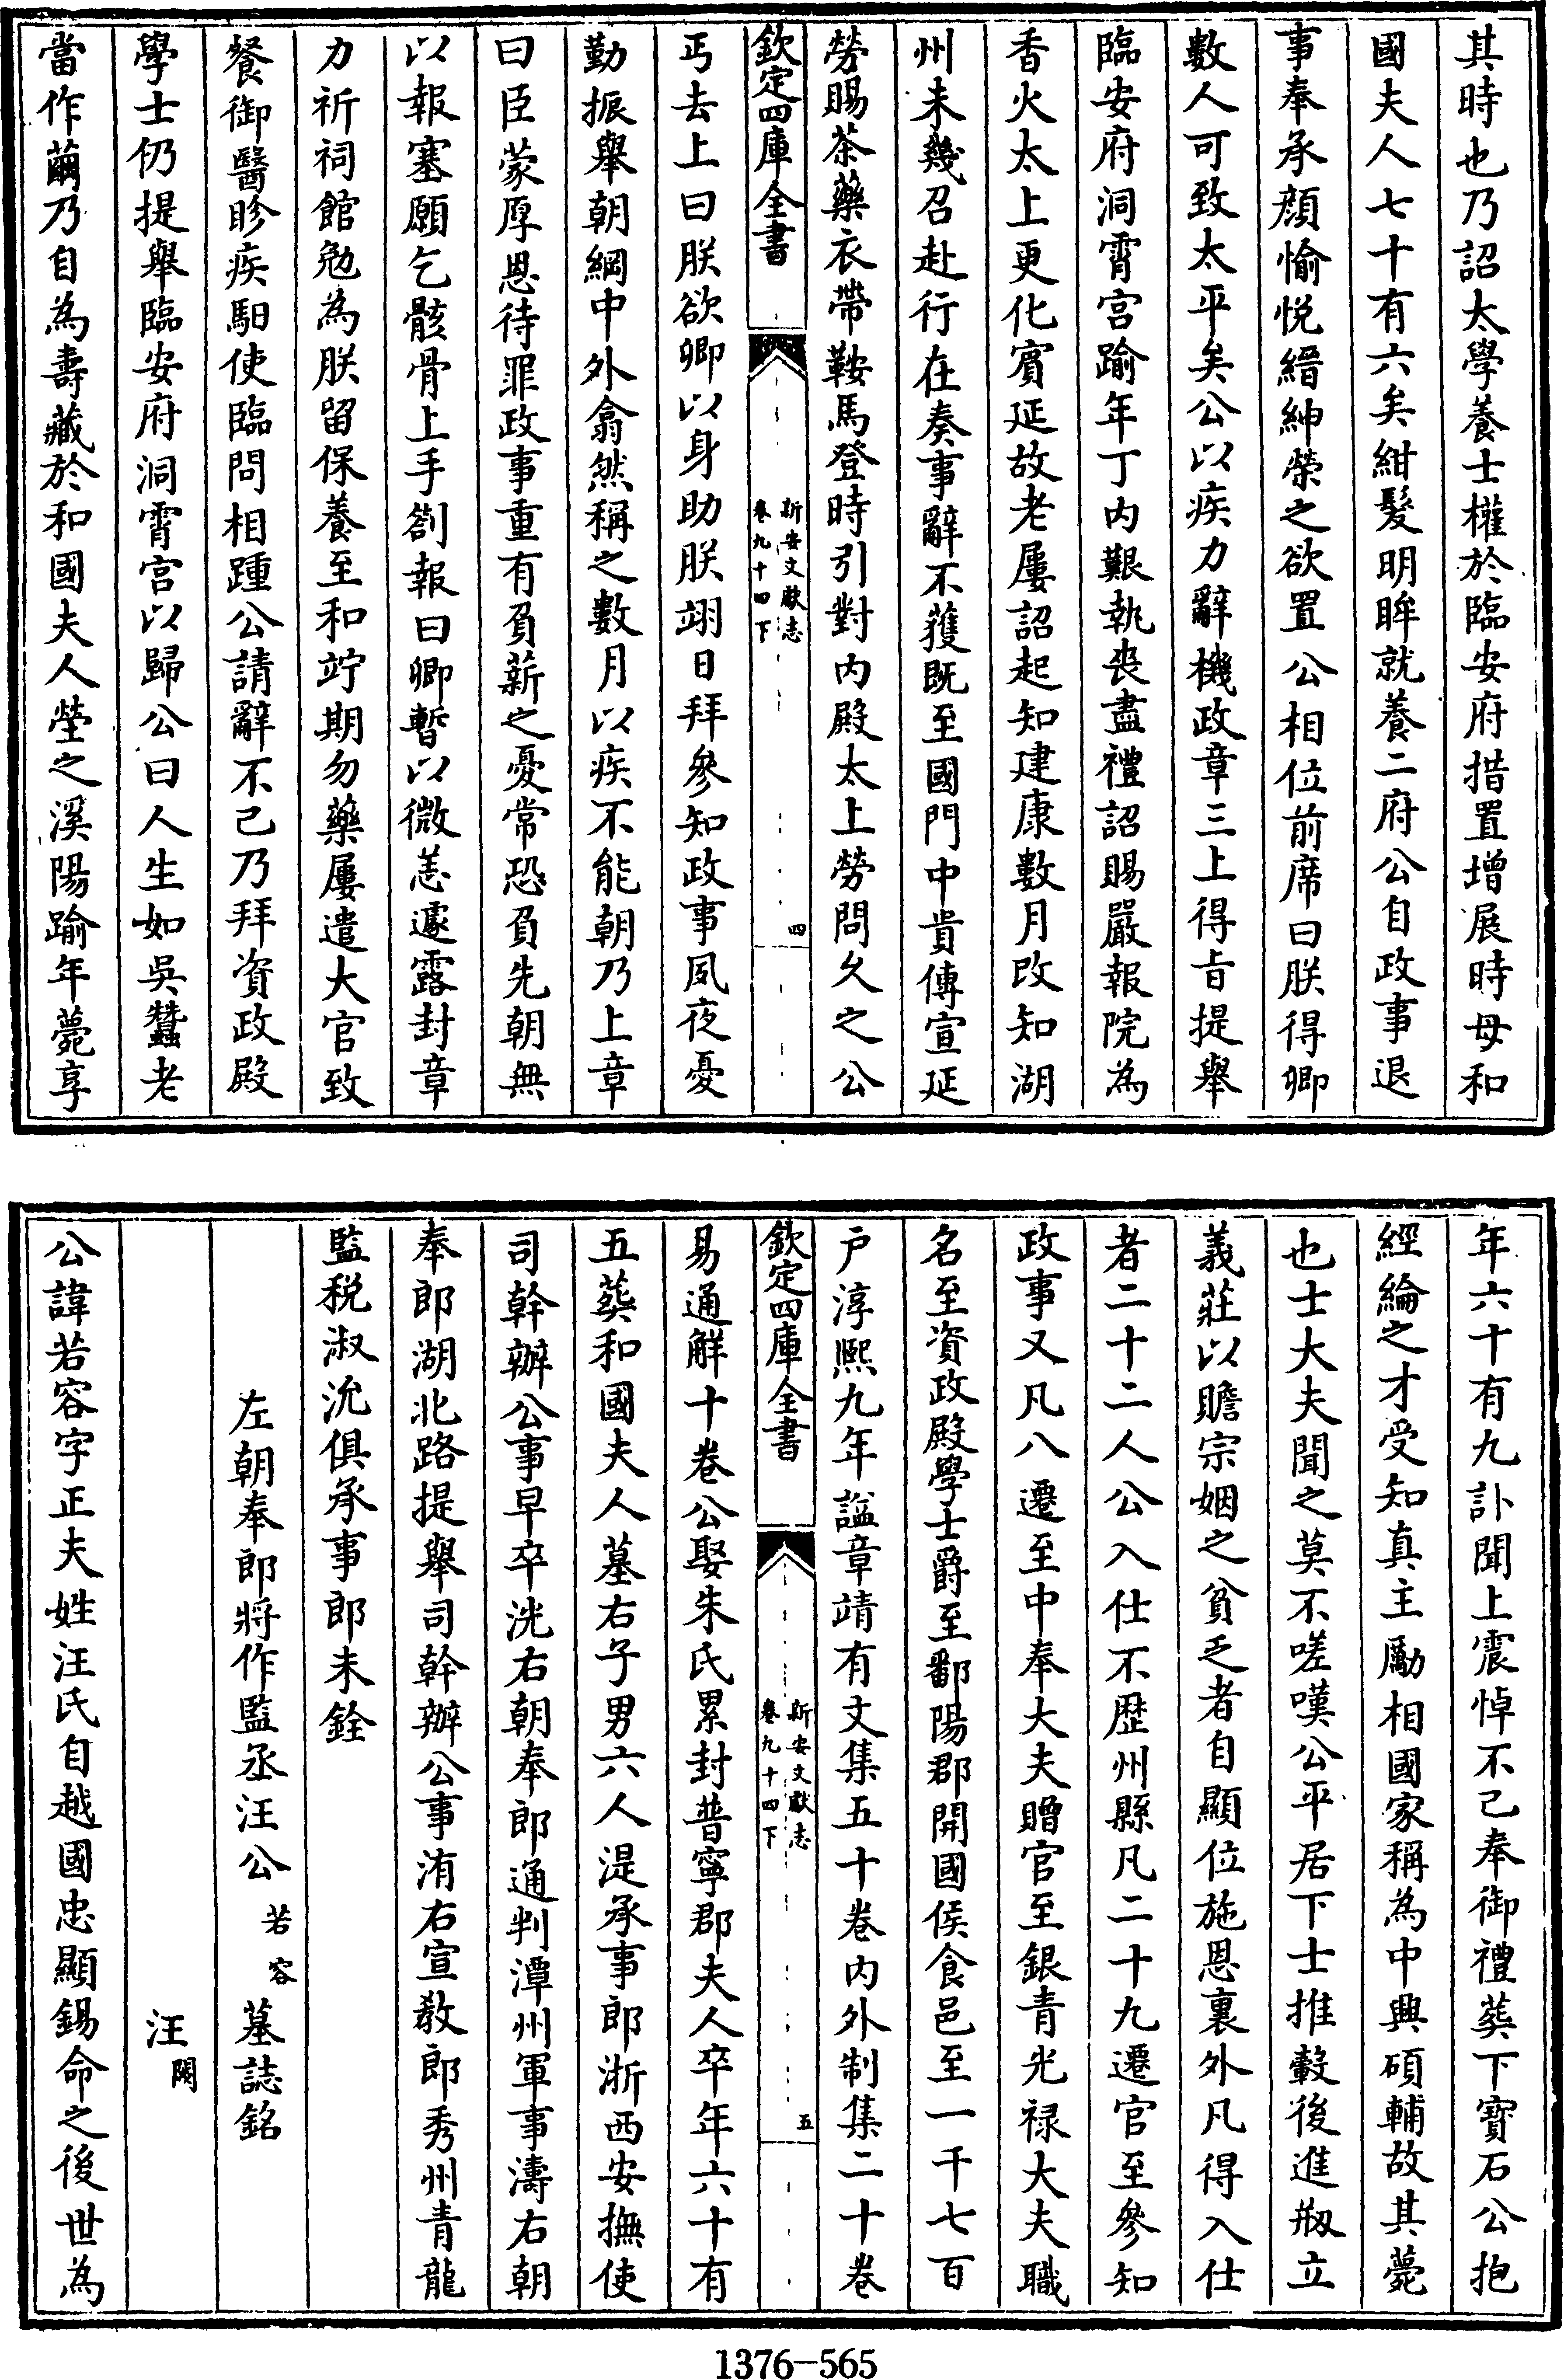 其時也乃詔太學養士權於臨安府措置增展時母和
國夫人七十有六矣紺髮明眸就養二府公自政事退
事奉承顔愉悦縉紳榮之欲置公相位前席曰朕得卿
數人可致太平矣公以疾力辭機政章三上得㫖提舉
臨安府洞霄宫踰年丁内艱執喪盡禮詔賜嚴報院為
香火太上更化賓延故老屢詔起知建康數月改知湖
州未幾召赴行在奏事辭不獲既至國門中貴傳宣延
勞賜茶藥衣帶鞍馬登時引對内殿太上勞問久之公
欽定四庫全書
新安文獻志
卷九十四下
四
丐去上曰朕欲卿以身助朕翊日拜參知政事夙夜憂
勤振舉朝綱中外翕然稱之數月以疾不能朝乃上章
曰臣蒙厚恩待罪政事重有負薪之憂常恐負先朝無
以報塞願乞骸骨上手劄報曰卿暫以微恙遽露封章
力祈祠館勉為朕留保養至和竚期勿藥屢遣大官致
餐御醫眕疾馹使臨問相踵公請辭不已乃拜資政殿
學士仍提舉臨安府洞霄宫以歸公曰人生如吳蠶老
當作繭乃自為壽藏於和國夫人塋之溪陽踰年薨享
年六十有九訃聞上震悼不已奉御禮葬下寶石公抱
經綸之才受知真主勵相國家稱為中興碩輔故其薨
也士大夫聞之莫不嗟嘆公平居下士推轂後進剏立
義莊以贍宗姻之貧乏者自顯位施恩裏外凡得入仕
者二十二人公入仕不歴州縣凡二十九遷官至參知
政事又凡八遷至中奉大夫贈官至銀青光禄大夫職
名至資政殿學士爵至鄱陽郡開國侯食邑至一千七百
户淳熙九年諡章靖有文集五十卷内外制集二十卷
欽定四庫全書
新安文獻志
卷九十四下
五
易通解十卷公娶朱氏累封普寧郡夫人卒年六十有
五葬和國夫人墓右子男六人湜承事郎浙西安撫使
司幹辦公事早卒洸右朝奉郎通判潭州軍事濤右朝
奉郎湖北路提舉司幹辦公事洧右宣教郎秀州青龍
監税淑沇俱承事郎未銓
左朝奉郎將作監丞汪公若容墓誌銘
汪闕
公諱若容字正夫姓汪氏自越國忠顯錫命之後世為
1376-565